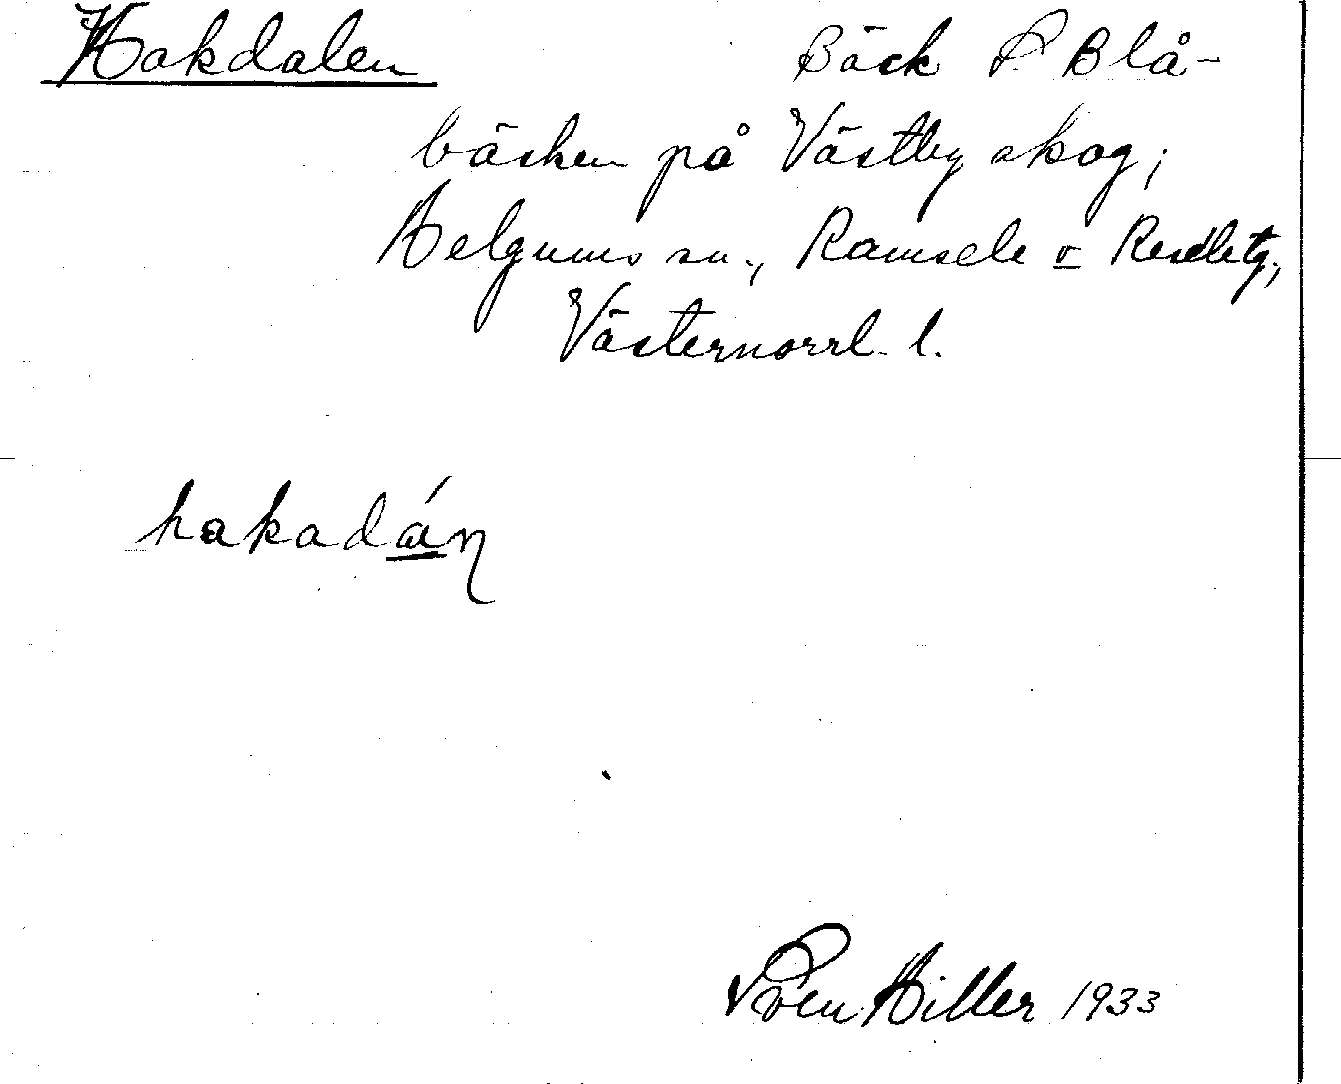 Hakdalen Bäck S. Blå-
bäcken på Västby skog;
Helgums sn., Ramsele o Reseletg;
Västernorrl. l.
hakadán
Sven Hiller 1933